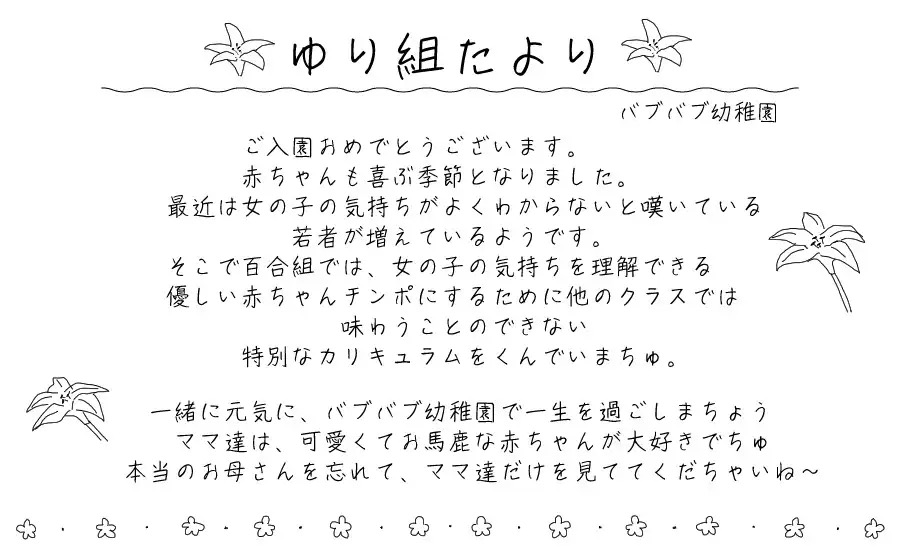 ゆり組たより
バブバブ幼稚園
ご入園おめでとうございます。
赤ちゃんも喜ぶ季節となりました。
最近は女の子の気持ちがよくわからないと嘆いている
若者が増えているようです。
そこで百合組では、女の子の気持ちを理解できる
優しい赤ちゃんチンポにするために他のクラスでは
味わうことのできない
特別なカリキュラムをくんでいまちゅ。
一緒に元気に、バブバブ幼稚園で一生を過ごしまちょう
ママ達は、可愛くてお馬鹿な赤ちゃんが大好きでちゅ
本当のお母さんを忘れて、ママ達だけを見ててくだちゃいね～